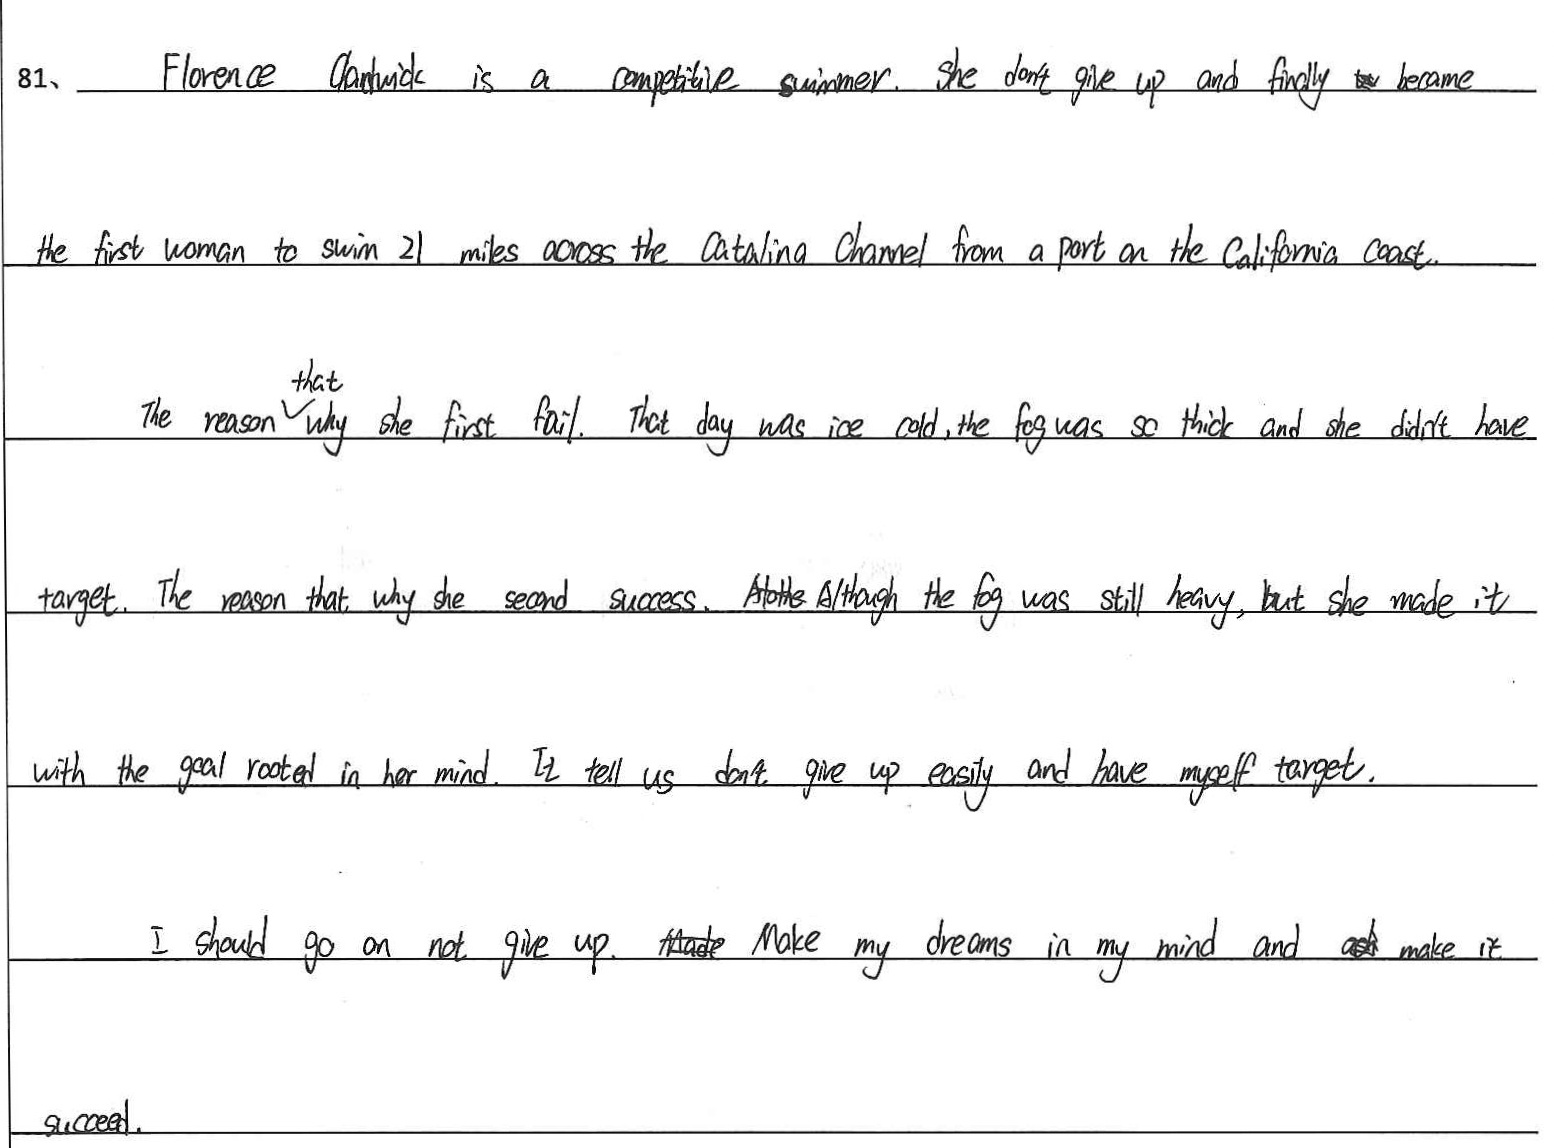 81、 Florence Chadwick is a competitive swimmer. She don't give up and finally became
the first woman to swim 21 miles across the Catalina Channel from a port on the California coast.
The reason that why she first fail. That day was ice cold, the fog was so thick and she didn't have
target. The reason that why she second success. Although the fog was still heavy, but she made it
with the goal rooted in her mind. It tell us don't give up easily and have myself target.
I should go on not give up. Make my dreams in my mind and make it
succeed.